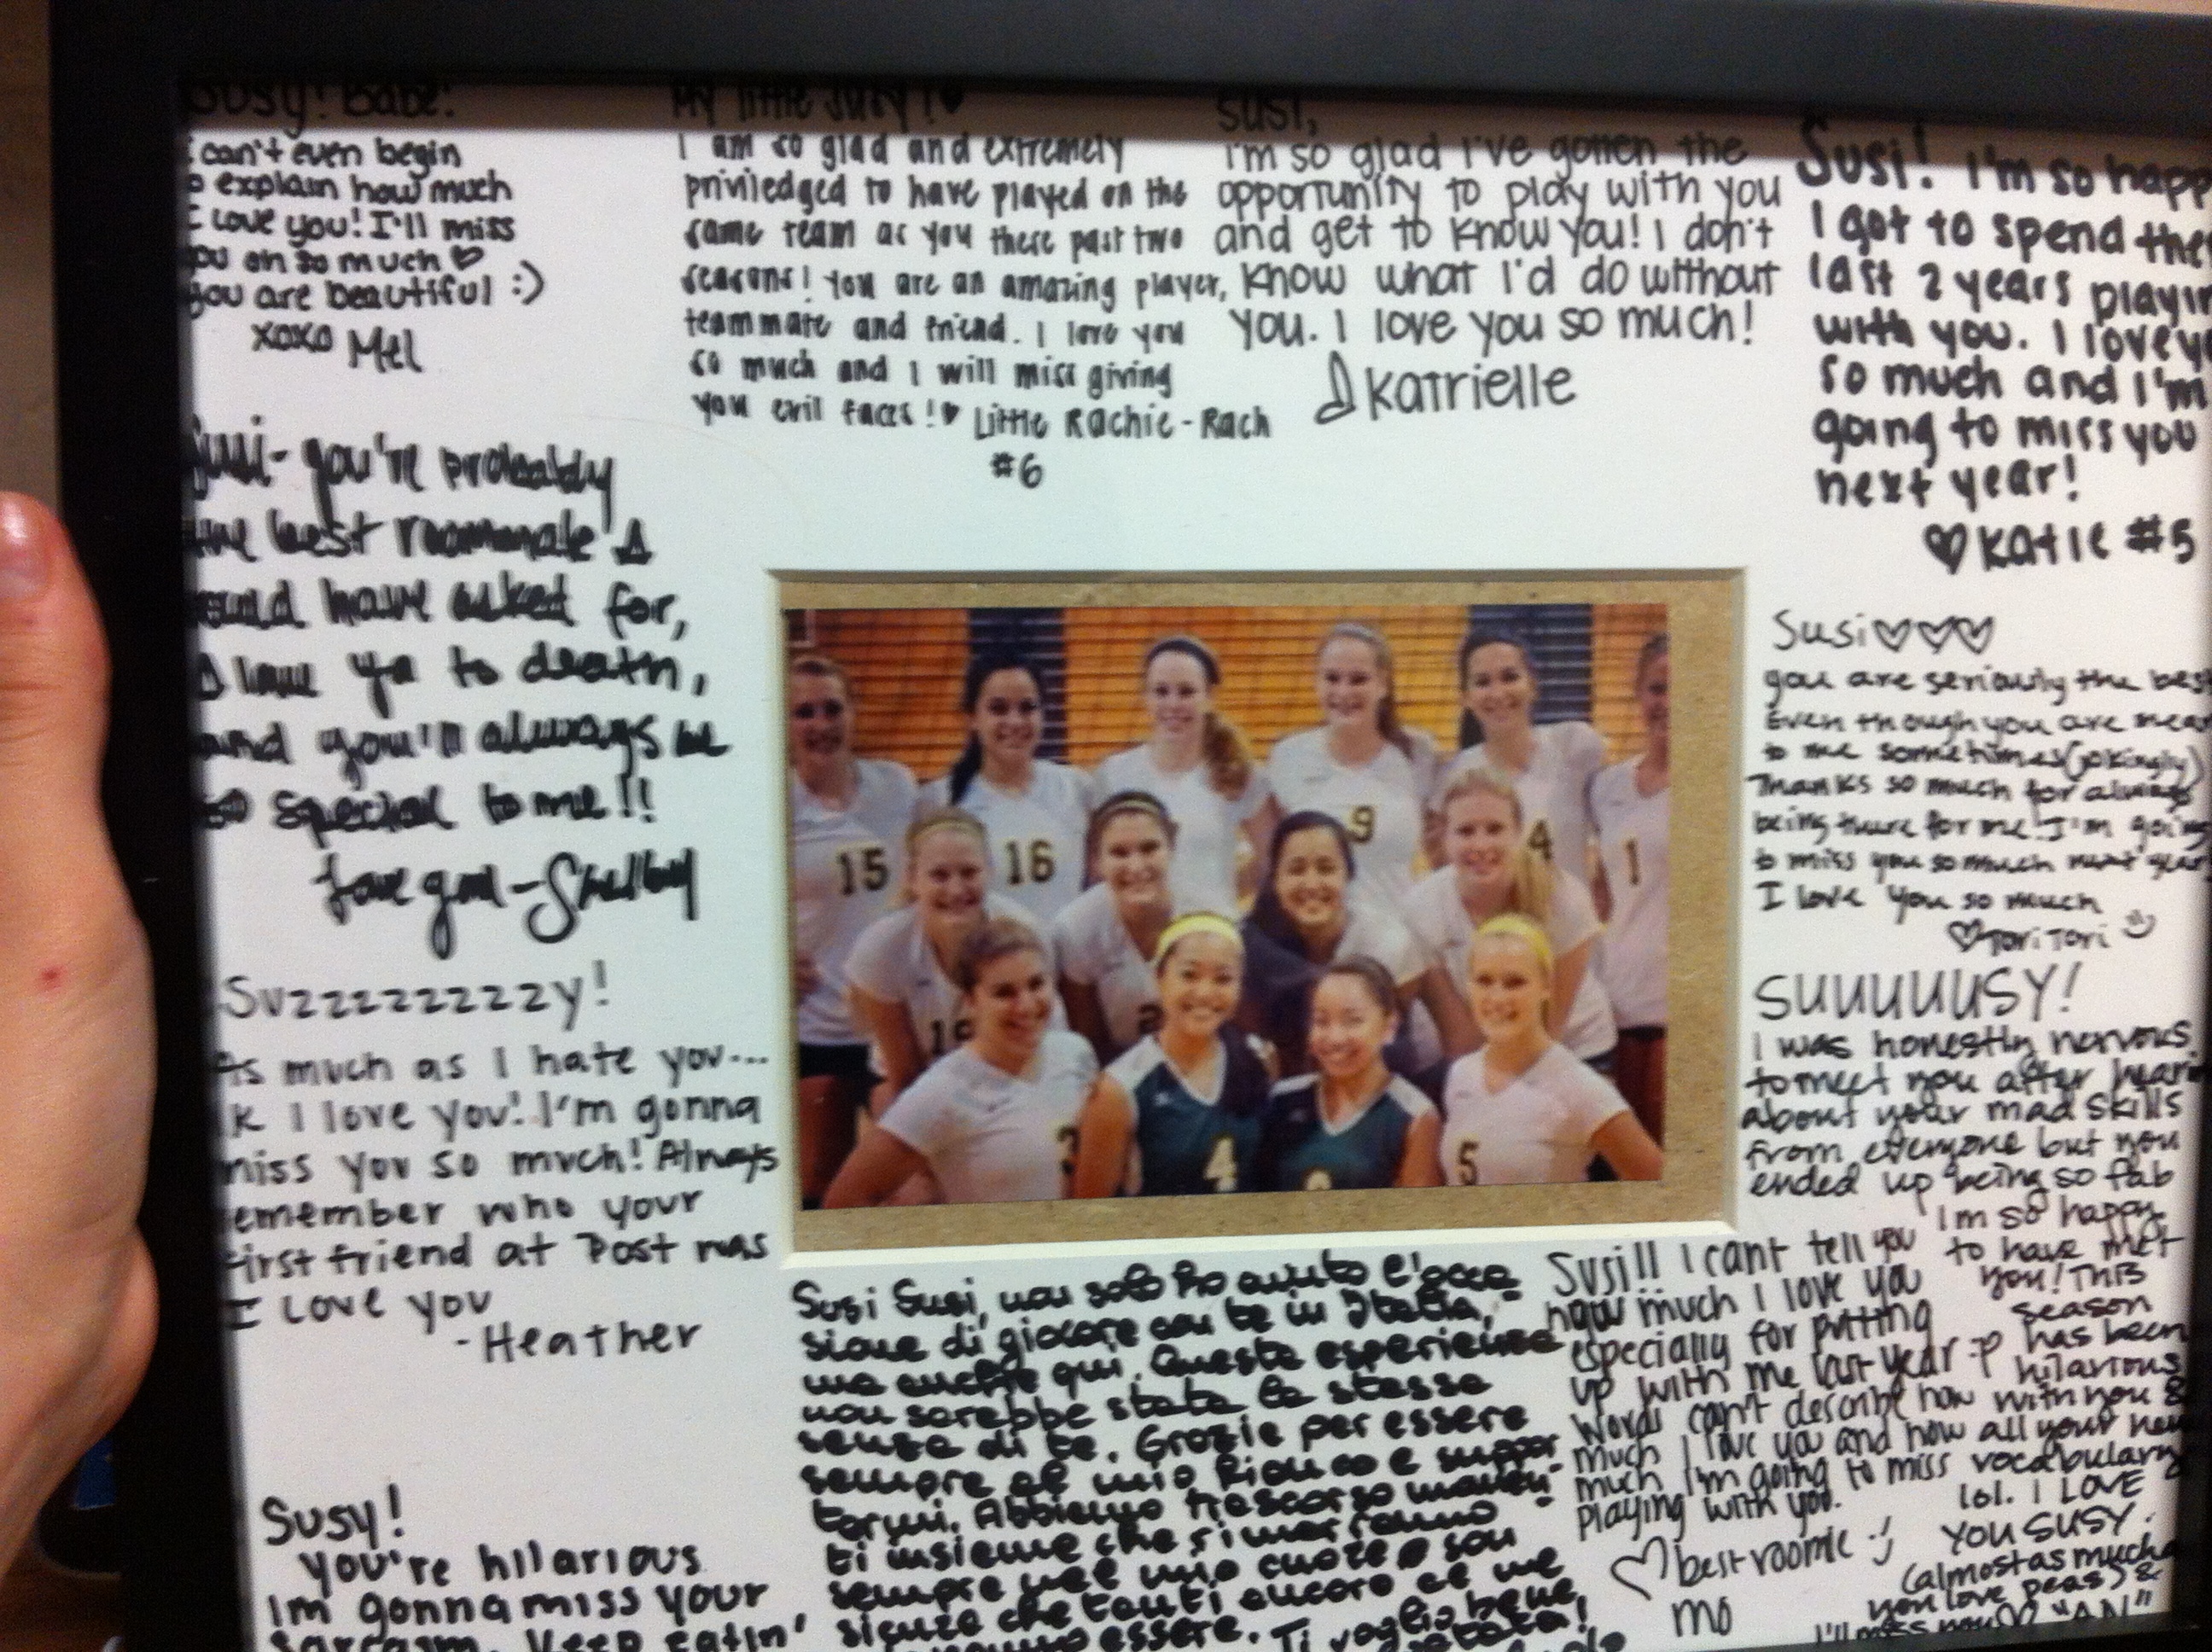 Susy! Babe!
can't even begin
explain how much
I love you! I'll miss
you oh so much ♡
you are beautiful :)
xoxo Mel
My little Suzy! ♥
I am so glad and extremely
priviledged to have played on the
same team as you these past two
seasons! You are an amazing player,
teammate and friend. I love you
so much and I will miss giving
you evil faces! ♥ Little Rachie-Rach
#6
Susi,
I'm so glad I've gotten the
opportunity to play with you
and get to know you! I don't
know what I'd do without
you. I love you so much!
Katrielle
Susi! I'm so happ
I got to spend the
last 2 years playin
with you. I love y
so much and I'm
going to miss you
next year!
♥ Katie #5
Susi- you're probably
the best roommate I
could have asked for,
I love ya to death,
and you'll always be
so special to me!!
Love you - Shelby
Susi ♡♡♡
you are seriously the best
Even though you are mea
to me sometimes (jokingly)
Thanks so much for always
being there for me! I'm going
to miss you so much next year
I love you so much
♡ Tori Tori
Suzzzzzzzzy!
As much as I hate you...
k I love you! I'm gonna
miss you so much! Always
remember who your
first friend at Post was
I Love you
- Heather
SUUUUUSY!
I was honestly nervous
to meet you after hear
about your mad skills
from everyone but you
ended up being so fab
I'm so happy
to have met
you! This
season
has been
hilarious
with you &
all your new
vocabulary
lol. I LOVE
YOU SUSY.
(almost as much a
you love peas) &
I'll miss you ♡ "AN"
Susy!
You're hilarious
Im gonna miss your
sarcasm. Keep eatin'
Susi Susi, non solo ho avuto l'occa
sione di giocare con te in Italia,
ma anche qui. Questa esperienza
non sarebbe stata la stessa
senza di te. Grazie per essere
sempre al mio fianco e suppor
tarmi. Abbiamo trascorso momen
ti insieme che rimarranno
sempre nel mio cuore e son
sicura che tanti ancora ce ne
essere. Ti voglio bene
Susi!! I can't tell you
how much I love you
especially for putting
up with me last year :P
Words can't describe how
much I love you and how
much I'm going to miss
playing with you.
♡ best roomie :)
Mo
15
16
9
4
1
3
4
5